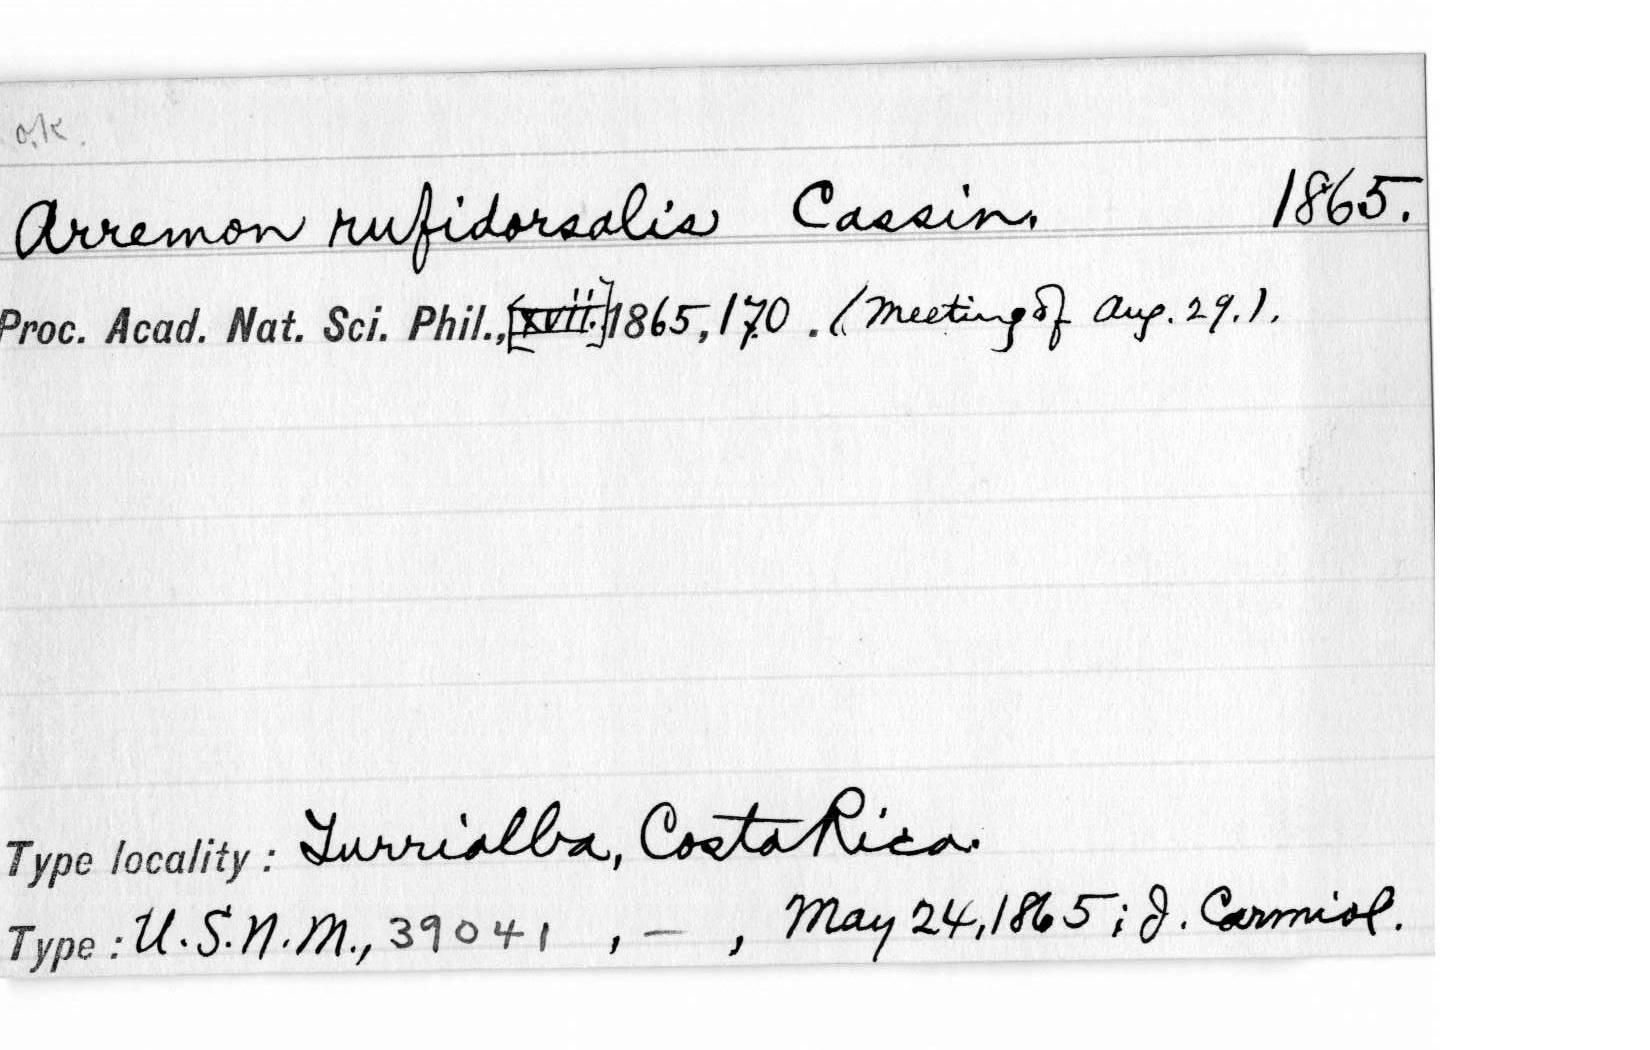 o.k.
Arremon rufidorsalis Cassin. 1865.
Proc. Acad. Nat. Sci. Phil., [xvii.] 1865, 170. (Meeting of Aug. 29.).
Type locality: Turrialba, Costa Rica.
Type: U.S.N.M., 39041, –, May 24, 1865; J. Carmiol.